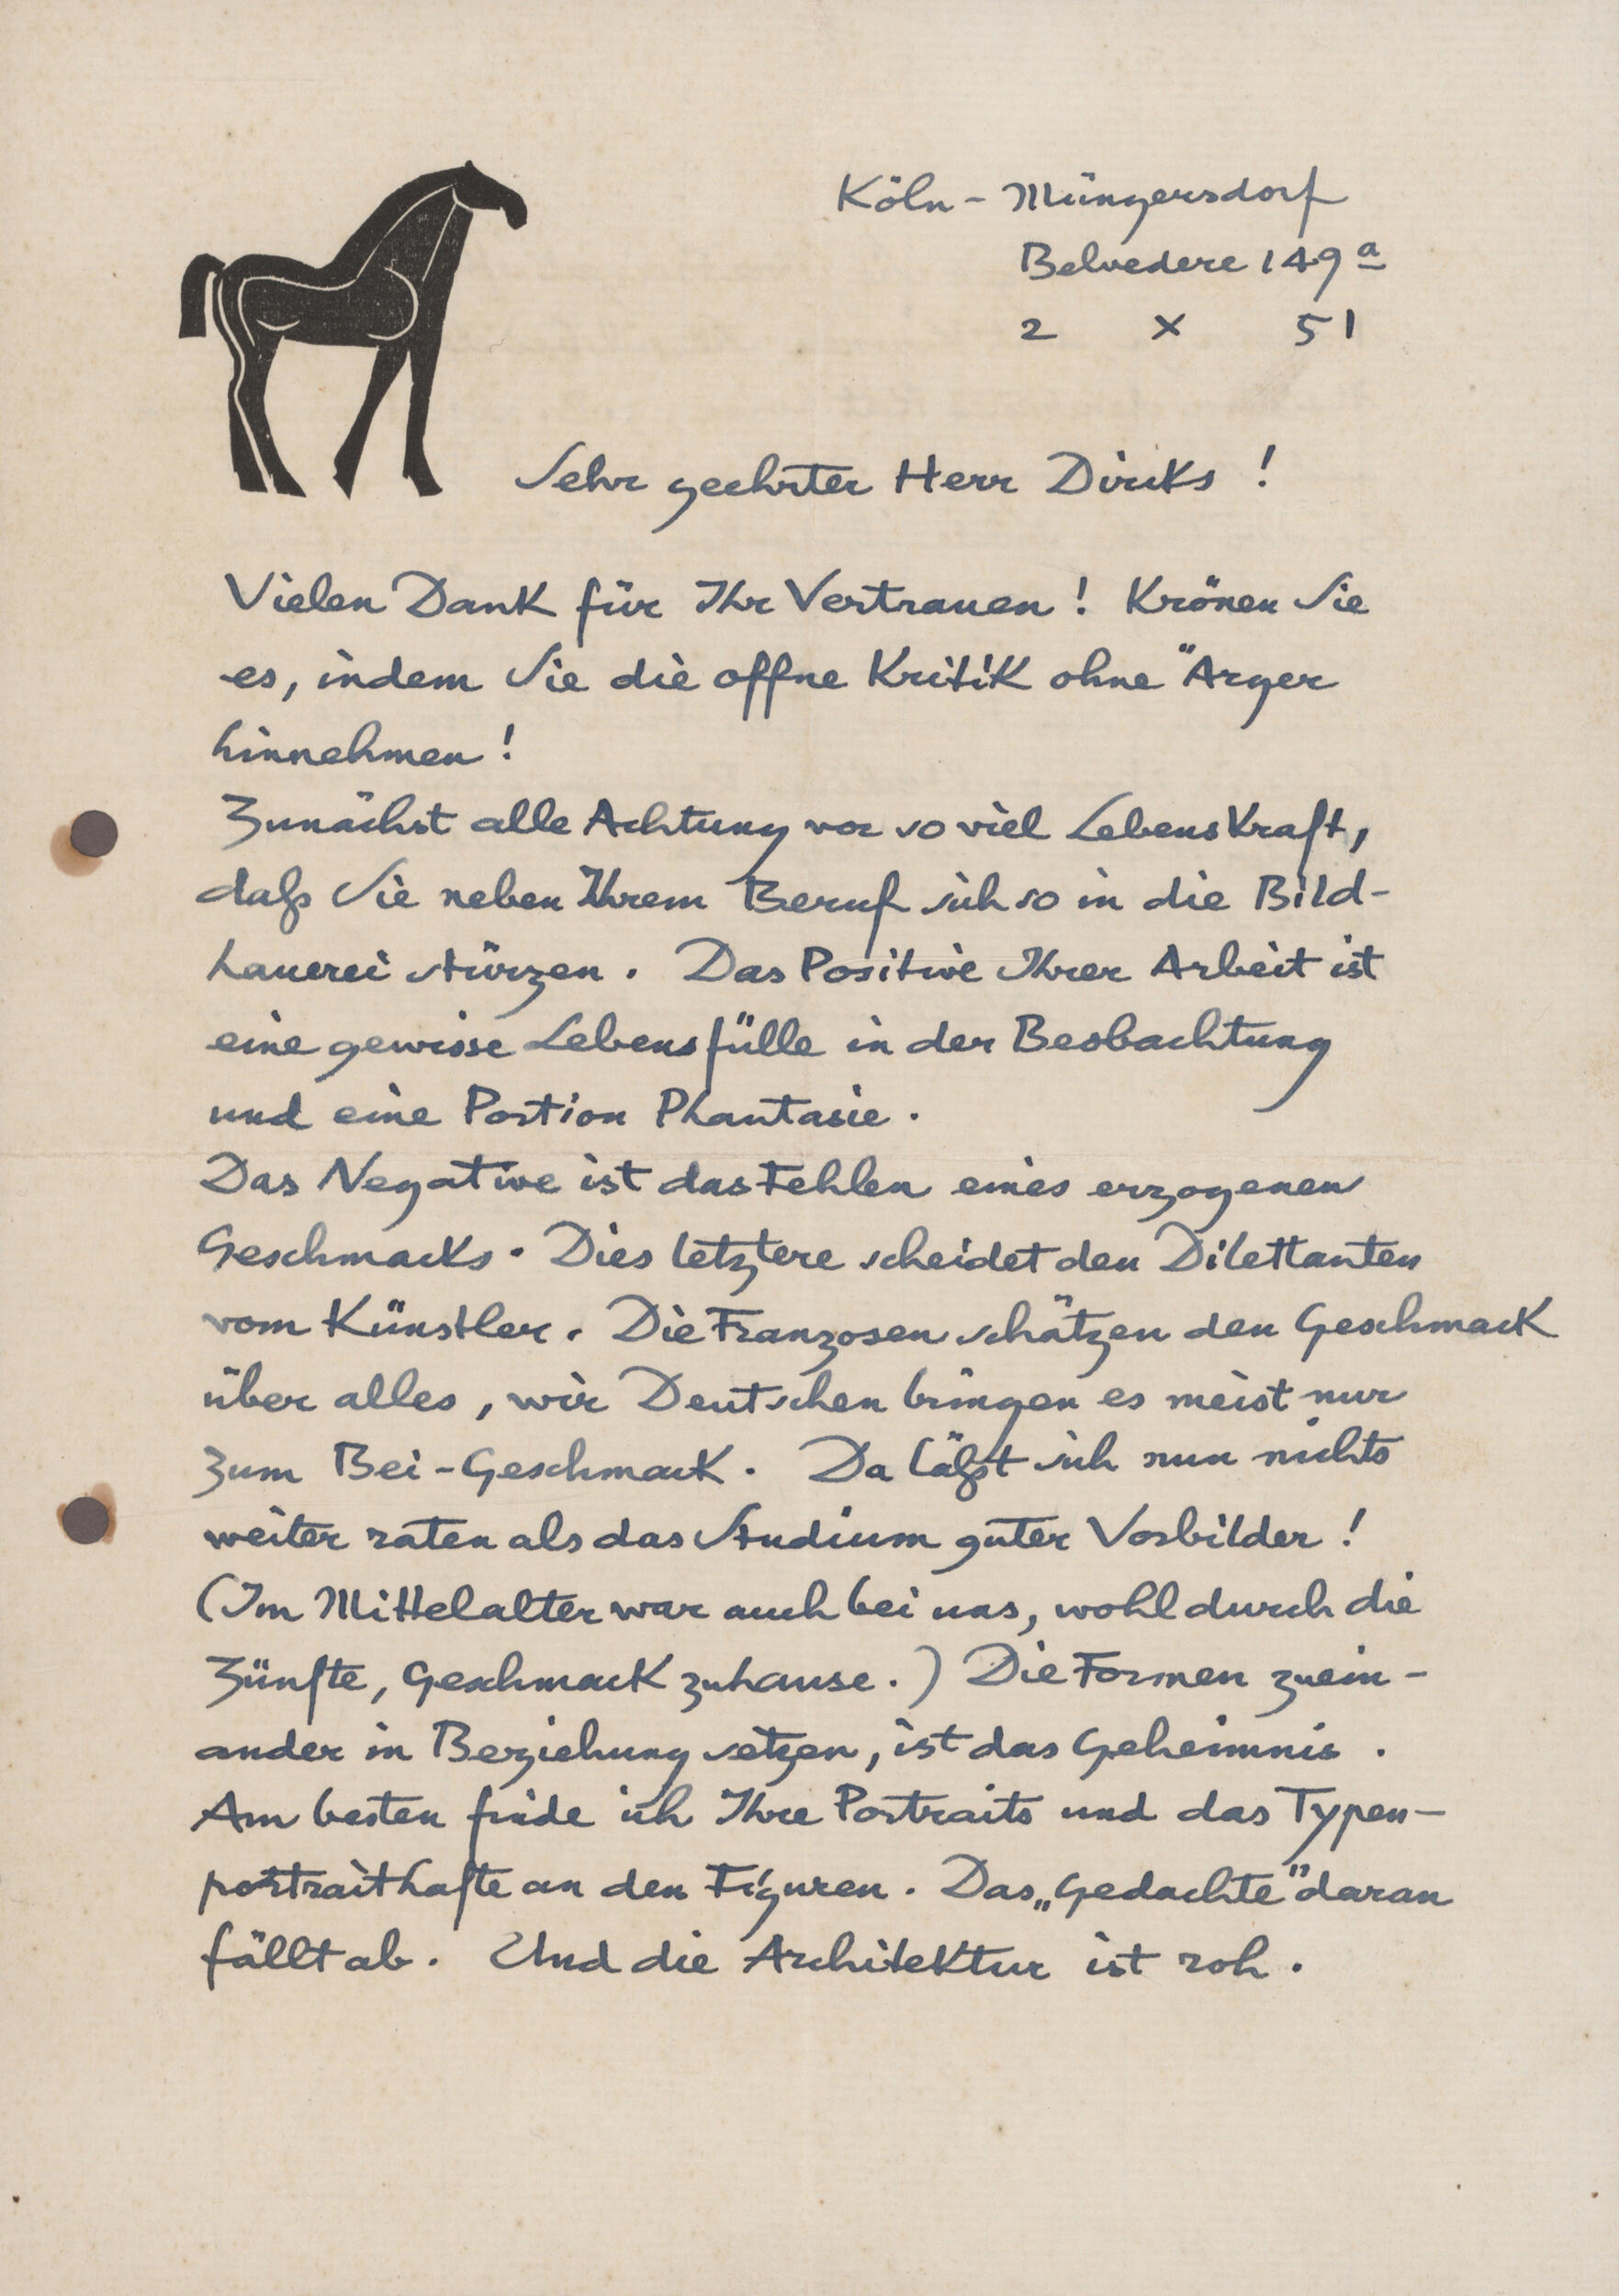 Köln - Müngersdorf
Belvedere 149 a
2 X 51
Sehr geehrter Herr Dircks !
Vielen Dank für Ihr Vertrauen ! Krönen Sie
es, indem Sie die offne Kritik ohne Ärger
hinnehmen !
Zunächst alle Achtung vor so viel Lebenskraft,
daß Sie neben Ihrem Beruf sich so in die Bild-
hauerei stürzen . Das Positive Ihrer Arbeit ist
eine gewisse Lebensfülle in der Beobachtung
und eine Portion Phantasie .
Das Negative ist das Fehlen eines erzogenen
Geschmacks . Dies letztere scheidet den Dilettanten
vom Künstler . Die Franzosen schätzen den Geschmack
über alles , wir Deutschen bringen es meist nur
zum Bei - Geschmack . Da läßt sich nun nichts
weiter raten als das Studium guter Vorbilder !
(Im Mittelalter war auch bei uns, wohl durch die
Zünfte, Geschmack zuhause . ) Die Formen zuein-
ander in Beziehung setzen, ist das Geheimnis .
Am besten finde ich Ihre Portraits und das Typen-
portraithafte an den Figuren . Das „Gedachte" daran
fällt ab . Und die Architektur ist roh .